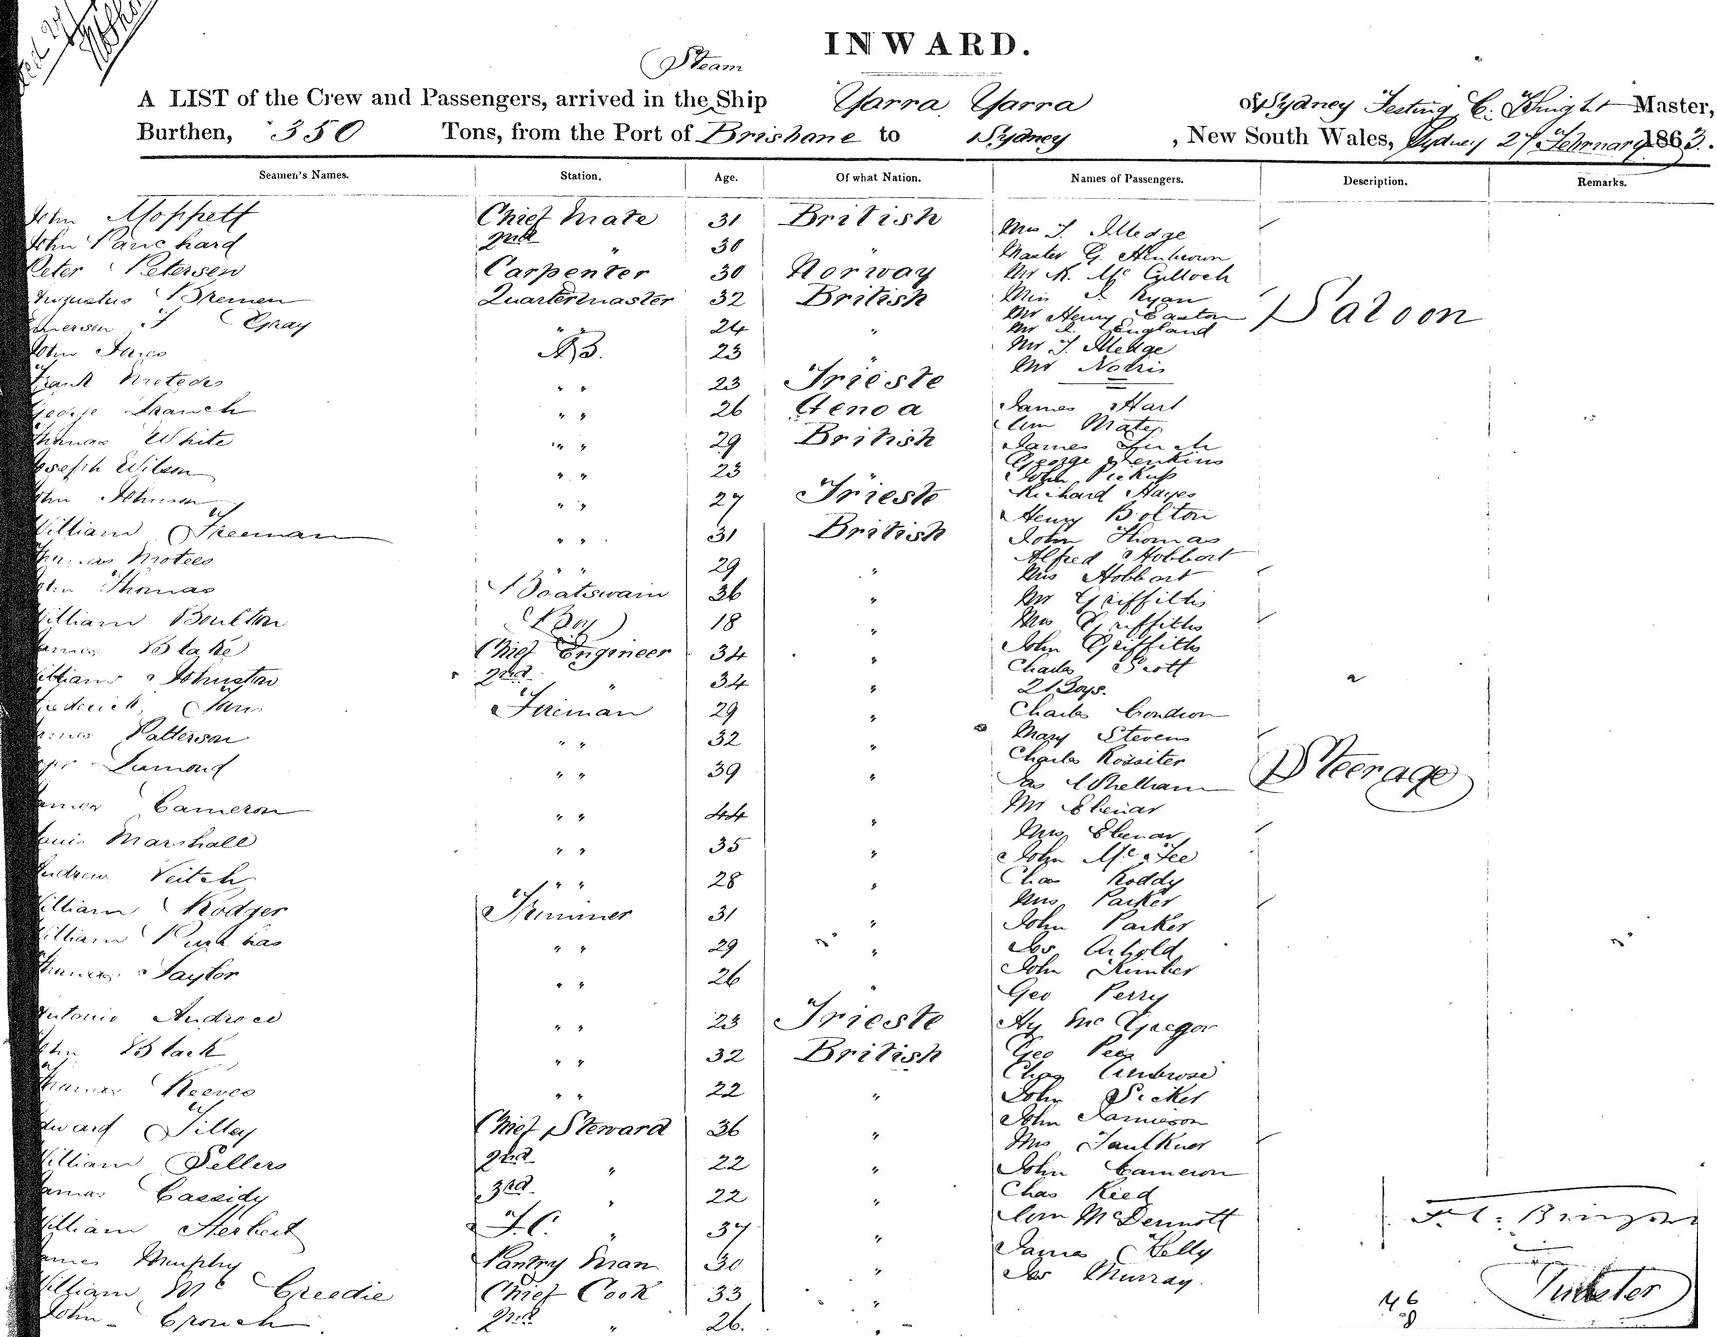 INWARD.
Steam
A LIST of the Crew and Passengers, arrived in the Ship Yarra Yarra of Sydney C. Knight Master,
Burthen, 350 Tons, from the Port of Brisbane to Sydney , New South Wales, Sydney 27 February 1863.
Seamen's Names. Station. Age. Of what Nation. Names of Passengers. Description. Remarks.
John Moppett Chief Mate 31 British
Mrs J. Illedge
John Panchard 2nd " 30 "
Master G.
Peter Petersen Carpenter 30 Norway Mr K. McCulloch
Augustus Bremen Quartermaster 32 British Miss J Ryan
Saloon
Mr Henry Easton
Emerson J Gray " " 24 " Mr J. England
John AB. 23 " Mr J. Illedge
Mr Norris
Frank " " 23 Trieste
George " " 26 Genoa James Hart
Wm Mate
Thomas White " " 29 British James
George Jenkins
Joseph Wilson " " 23 " John Pickup
John Johnson " " 27 Trieste Richard Hayes
Henry Bolton
William Freeman " " 31 British John Thomas
Alfred Hobbart
Thomas Motees " " 29 " Mrs Hobbart
John Thomas Boatswain 36 " Mr Griffiths
William Boulton Boy 18 " Mrs Griffiths
James Blake Chief Engineer 34 " John Griffiths
Charles Scott
William Johnston 2nd " 34 " 2 Boys.
Frederick Fireman 29 " Charles Condron
James Patterson " " 32 " Mary Stevens
Charles Rossiter
Lamond " " 39 "
Steerage
Jas Whelham
James Cameron " " 44 " Mr Ebenar
Mrs Ebenar
Louis Marshall " " 35 " John McFee
Andrew Veitch " " 28 " Chas Roddy
Mrs Parker
William Rodger Trimmer 31 " John Parker
William " " 29 " Jos Arnold
Thomas Taylor " " 26 " John Kimber
Geo Perry
Antonio Andreco " " 23 Trieste Hy McGregor
John Black " " 32 British Geo
Chas Ambrose
Thomas Reeves " " 22 " John
John Jamieson
Edward Tilley Chief Steward 36 " Mrs Faulkner
William Sellers 2nd " 22 " John Cameron
James Cassidy 3rd " 22 " Chas Reed
William Herbert F.C. " 37 " Wm McDermott
James Murphy Pantry Man 30 " James Kelly
Jas Murray.
William McCreedie Chief Cook 33 "
John Crouch 2nd " 26. "
46
8